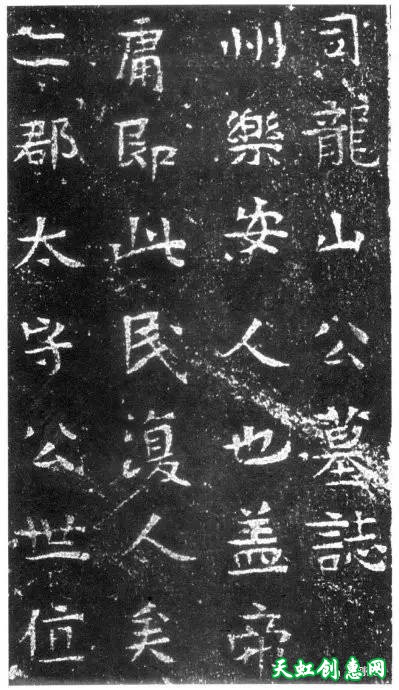 司龍山公墓誌
州樂安人也盖帝
庸即此民復人矣
二郡太守公世位
天虹创惠网